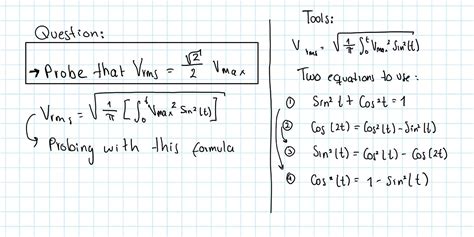 Question:
→ Probe that Vrms = √2/2 Vmax
Vrms = √(1/π [∫₀ᵗ Vmax² Sin²(t)]
Probing with this formula
Tools:
Vrms = √(1/π ∫₀ᵗ Vmax² Sin²(t))
Two equations to use:
① Sin² t + Cos² t = 1
② Cos (2t) = Cos²(t) - Sin²(t)
③ Sin²(t) = Cos²(t) - Cos(2t)
④ Cos²(t) = 1 - Sin²(t)